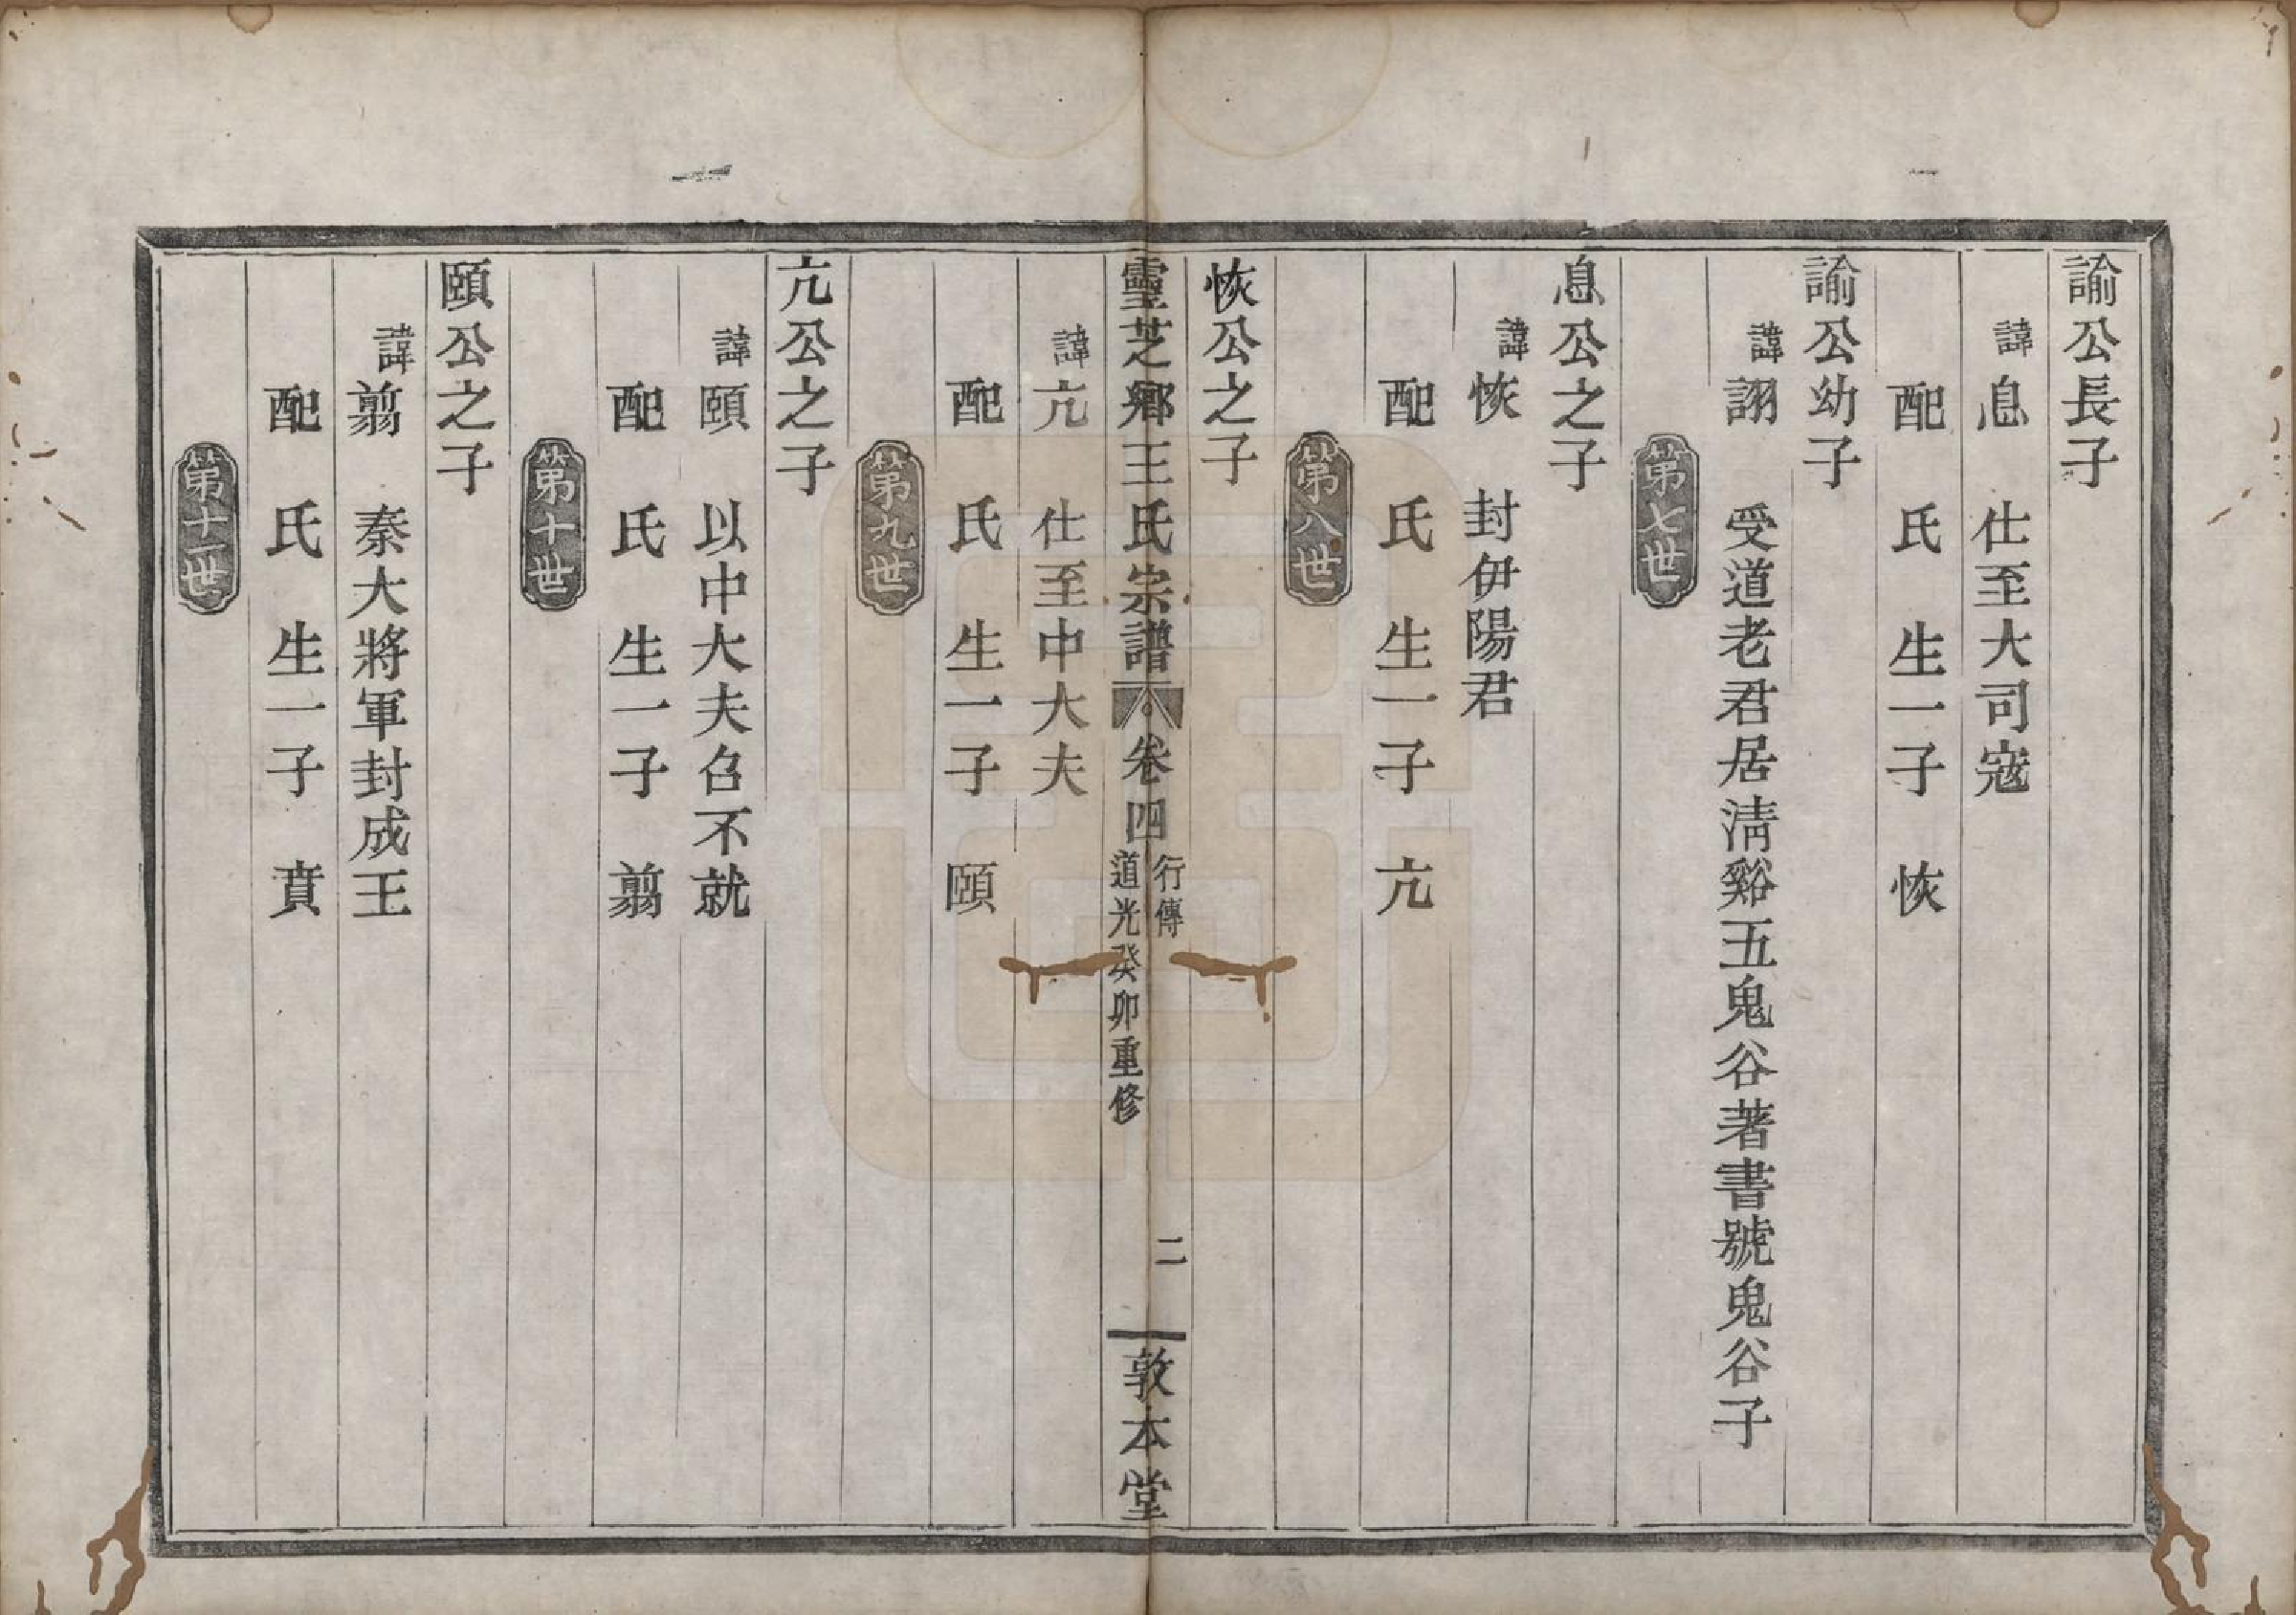 諭公長子
諱息　仕至大司寇
配　氏　生一子　恢
諭公幼子
諱詡　受道老君居淸谿五鬼谷著書號鬼谷子
第七世
息公之子
諱恢　封伊陽君
配　氏　生一子　亢
第八世
恢公之子
靈芝鄉王氏宗譜　卷四　行傳　道光癸卯重修　二　敦本堂
諱亢　仕至中大夫
配　氏　生一子　頤
第九世
亢公之子
諱頤　以中大夫召不就
配　氏　生一子　翦
第十世
頤公之子
諱翦　秦大將軍封成王
配　氏　生一子　賁
第十一世